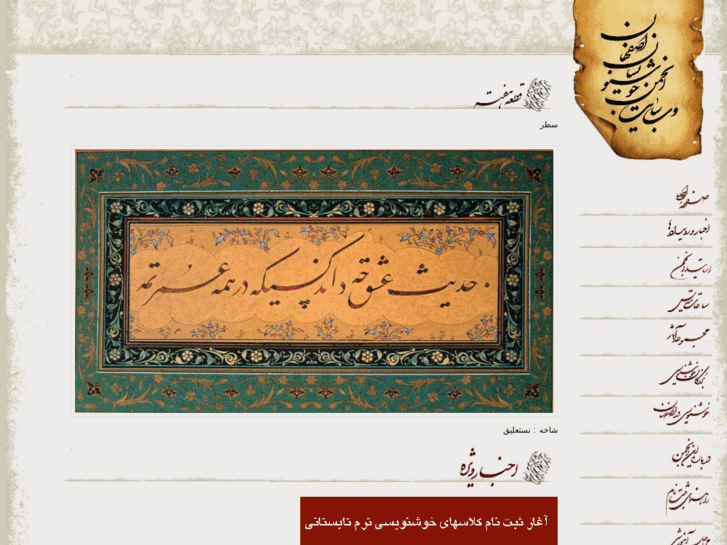 وب سایت
انجمن خوشنویسان
اصفهان
قطعه هفته
سطر
حدیث عشق چه داند کسیکه در همه عمر
شاخه : نستعلیق
اخبار ویژه
آغاز ثبت نام کلاسهای خوشنویسی ترم تابستانی
صفحه اصلی
اخبار و رویدادها
اساتید انجمن
مجموعه آثار
خوشنویسی در اصفهان
درباره این انجمن
راهنمای ثبت نام